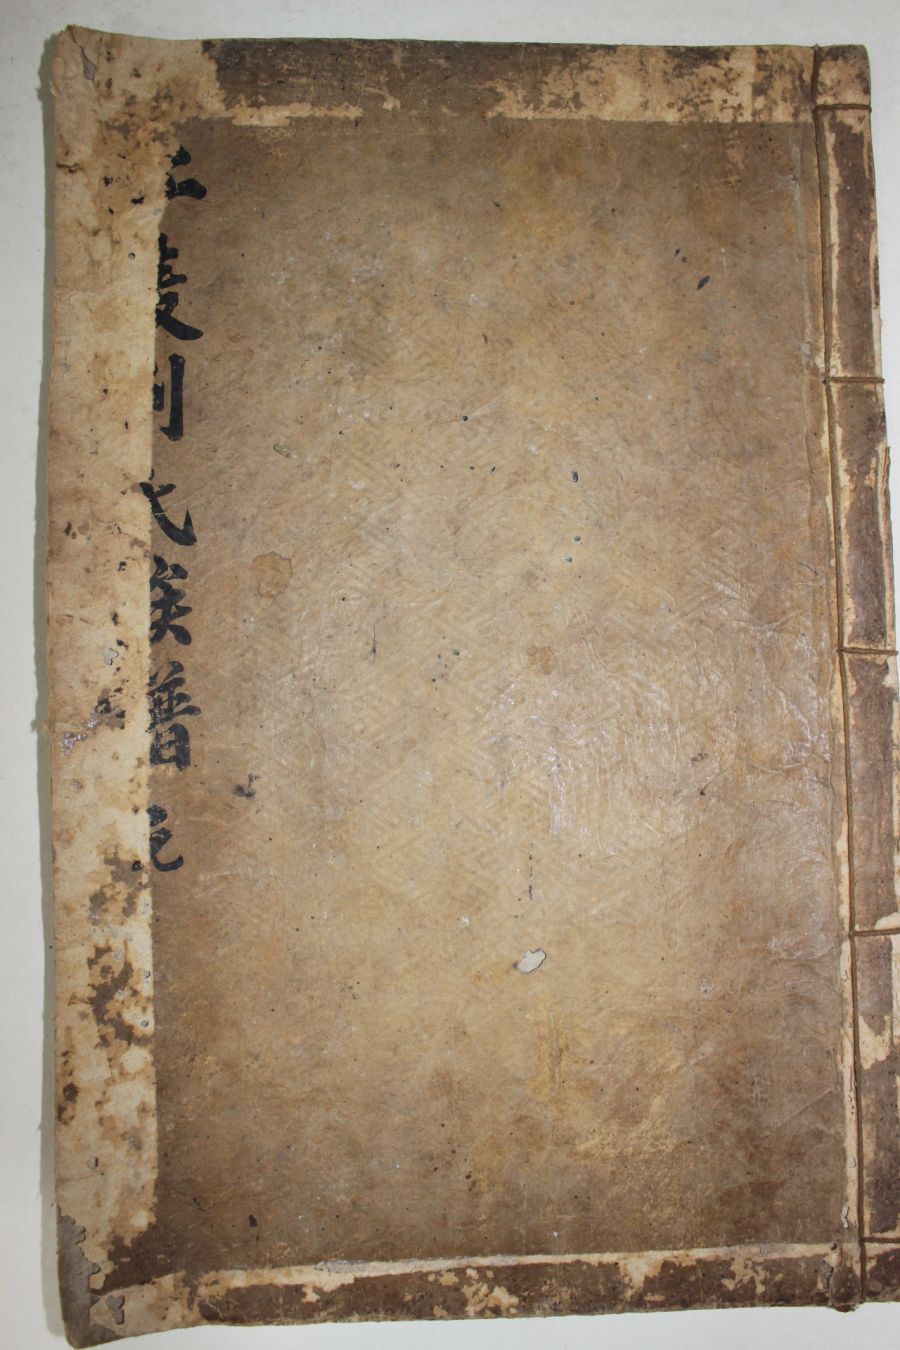 江陵劉氏族譜 元